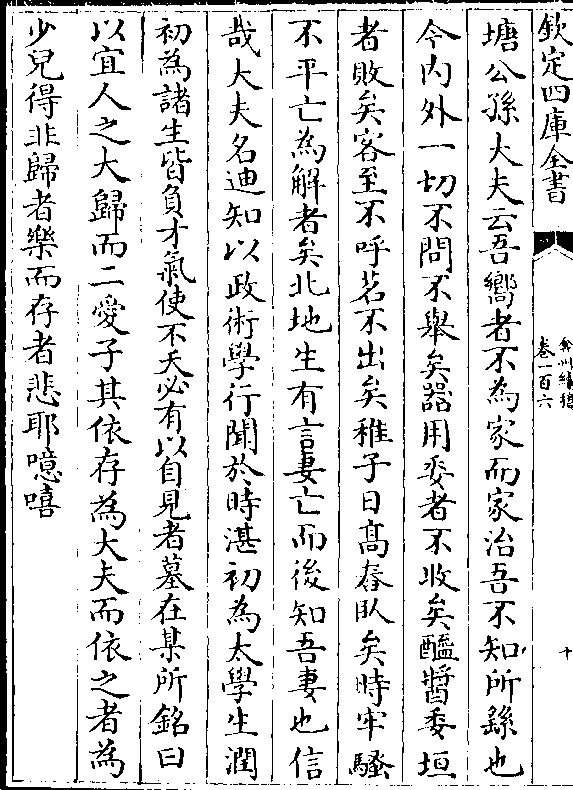 欽定四庫全書
弇州續稿
卷一百六
十
塘公孫大夫云吾嚮者不為家而家治吾不知所繇也
今内外一切不問不舉矣器用委者不收矣醯醬委垣
者敗矣客至不呼茗不出矣稚子日髙舂臥矣時牢騷
不平亡為解者矣北地生有言妻亡而後知吾妻也信
哉大夫名迪知以政術學行聞於時湛初為太學生潤
初為諸生皆負才氣使不夭必有以自見者墓在某所銘曰
以宜人之大歸而二愛子其依存為大夫而依之者為
少兒得非歸者樂而存者悲耶噫嘻